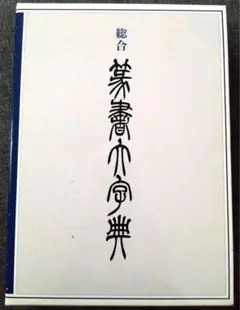 総合
篆書大字典